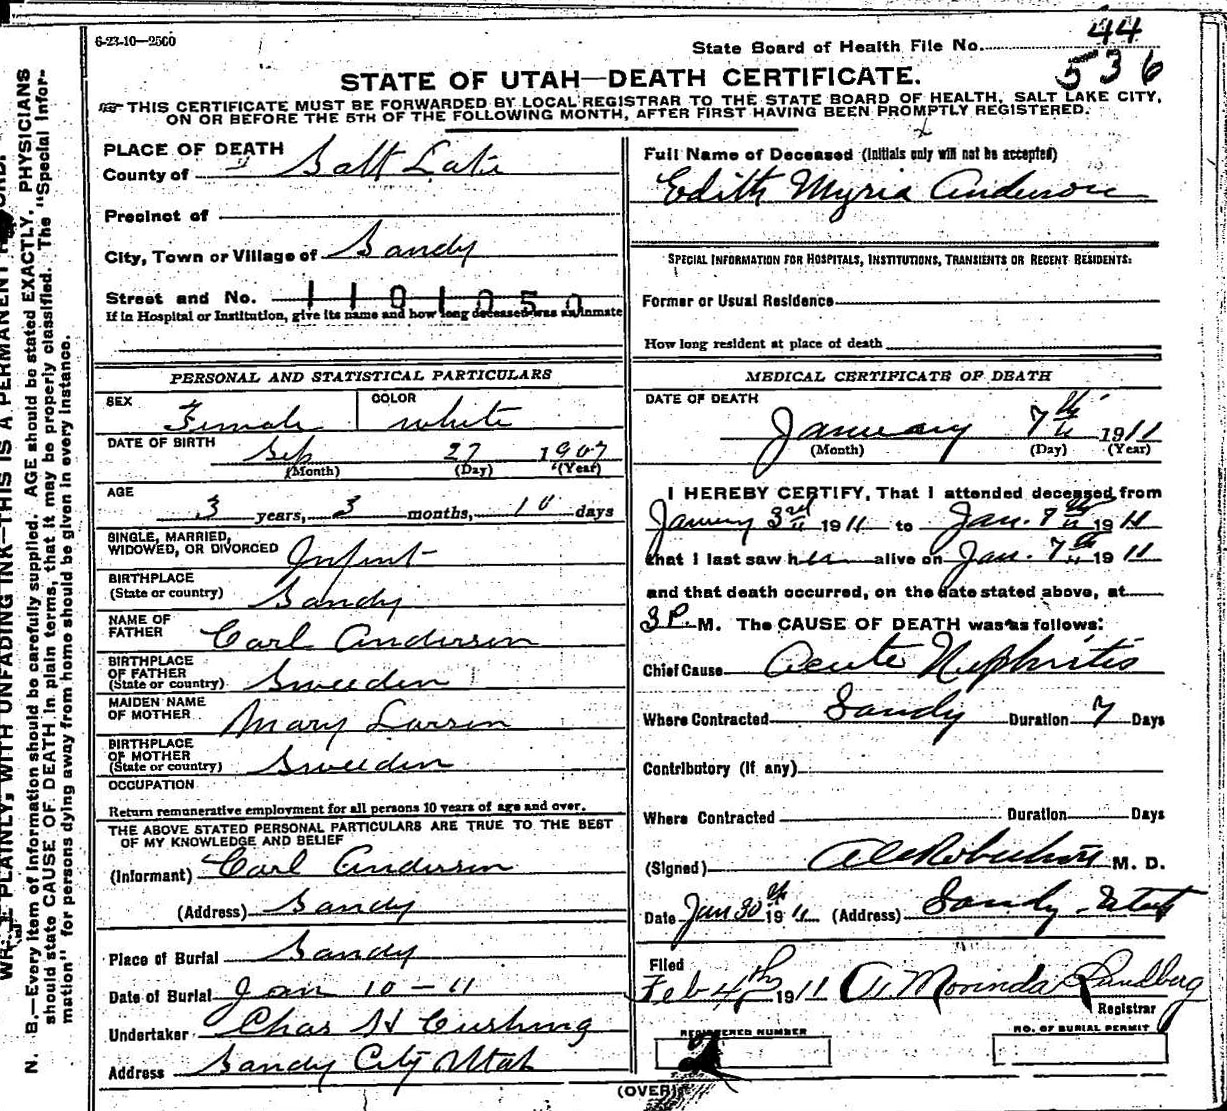 6-23-10—2500
State Board of Health File No. 44
536
STATE OF UTAH—DEATH CERTIFICATE.
THIS CERTIFICATE MUST BE FORWARDED BY LOCAL REGISTRAR TO THE STATE BOARD OF HEALTH, SALT LAKE CITY,
ON OR BEFORE THE 5TH OF THE FOLLOWING MONTH, AFTER FIRST HAVING BEEN PROMPTLY REGISTERED.
PLACE OF DEATH
County of Salt Lake
Precinct of
City, Town or Village of Sandy
Street and No. 1101050
If in Hospital or Institution, give its name and how long deceased was an inmate
PERSONAL AND STATISTICAL PARTICULARS
SEX Female COLOR white
DATE OF BIRTH
Sep 27 1907
(Month) (Day) (Year)
AGE
3 years, 3 months, 10 days
SINGLE, MARRIED,
WIDOWED, OR DIVORCED Infant
BIRTHPLACE
(State or country) Sandy
NAME OF
FATHER Carl Anderson
BIRTHPLACE
OF FATHER
(State or country) Sweeden
MAIDEN NAME
OF MOTHER Mary Larsen
BIRTHPLACE
OF MOTHER
(State or country) Sweeden
OCCUPATION
Return remunerative employment for all persons 10 years of age and over.
THE ABOVE STATED PERSONAL PARTICULARS ARE TRUE TO THE BEST
OF MY KNOWLEDGE AND BELIEF
(Informant) Carl Anderson
(Address) Sandy
Place of Burial Sandy
Date of Burial Jan 10 - 11
Undertaker Chas H Cushing
Address Sandy City Utah
Full Name of Deceased (Initials only will not be accepted)
Edith Myria Anderson
SPECIAL INFORMATION FOR HOSPITALS, INSTITUTIONS, TRANSIENTS OR RECENT RESIDENTS:
Former or Usual Residence
How long resident at place of death
MEDICAL CERTIFICATE OF DEATH
DATE OF DEATH
January 7th 1911
(Month) (Day) (Year)
I HEREBY CERTIFY, That I attended deceased from
January 3rd 1911 to Jan. 7th 1911
that I last saw her alive on Jan. 7th 1911
and that death occurred, on the date stated above, at
3 P. M. The CAUSE OF DEATH was as follows:
Chief Cause Acute Nephritis
Where Contracted Sandy Duration 7 Days
Contributory (if any)
Where Contracted Duration Days
(Signed) M. D.
Date Jan 30th 1911 (Address) Sandy Utah
Filed
Feb 4th 1911 A. Morinda Sandberg
Registrar
REGISTERED NUMBER
NO. OF BURIAL PERMIT
(OVER)
PLAINLY, WITH UNFADING INK—THIS IS A PERMANENT
N. B.—Every item of information should be carefully supplied. AGE should be stated EXACTLY. PHYSICIANS
should state CAUSE OF DEATH in plain terms, that it may be properly classified. The "Special Infor-
mation" for persons dying away from home should be given in every instance.